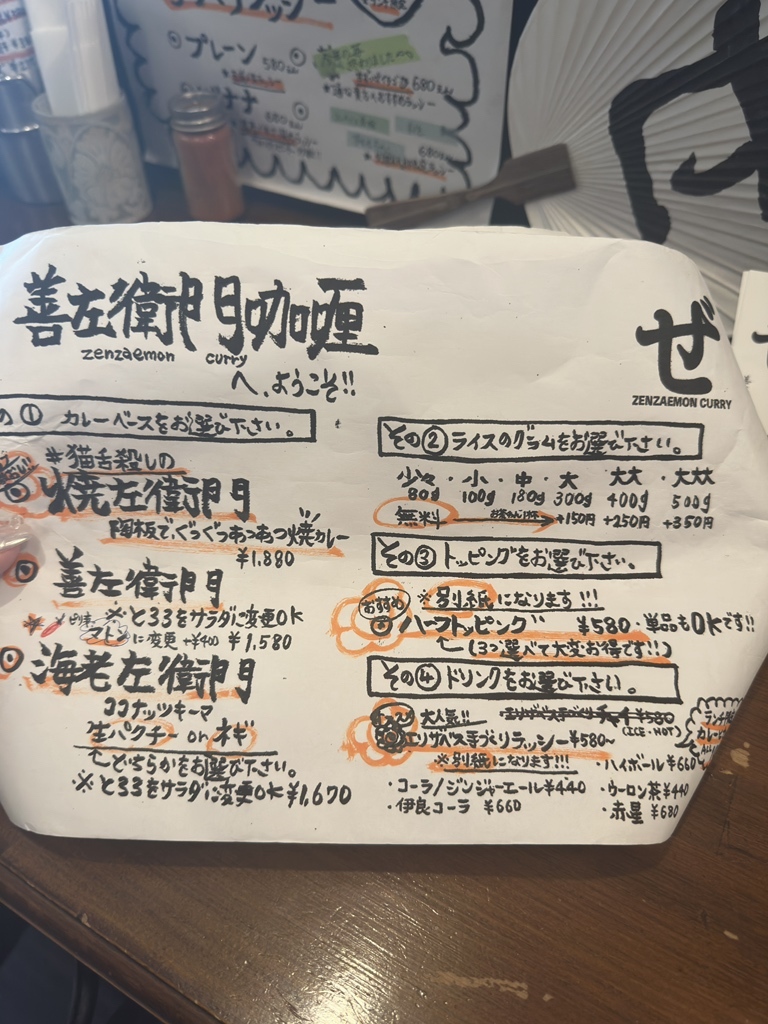 プレーン 580
680
善左衛門咖喱
zenzaemon curry
へ、ようこそ!!
ぜ
ZENZAEMON CURRY
の① カレーベースをお選び下さい。
※猫舌殺しの
焼左衛門
陶板で、ぐつぐつあつあつ焼カレー
¥1,880
善左衛門
※とろろをサラダに変更OK
マトンに変更 +¥400 ¥1,580
海老左衛門
ココナッツキーマ
生パクチー or ネギ
どちらかをお選び下さい。
※とろろをサラダに変更OK ¥1,670
その② ライスのグラムをお選び下さい。
少々・小・中・大 大大・大大大
80g 100g 180g 300g 400g 500g
無料 +150円 +250円 +350円
その③ トッピングをお選び下さい。
※別紙になります!!!
おすすめ
ハーフトッピング ¥580・単品もOKです!!
(3つ選べて大変お得です!!)
その④ ドリンクをお選び下さい。
大人気!! エリザベス手づくりチャイ ¥580
(ICE・HOT)
エリザベス手づくりラッシー ¥580~
※別紙になります!!!
・ハイボール ¥660
・コーラ/ジンジャーエール ¥440
・ウーロン茶 ¥440
・伊良コーラ ¥660
・赤星 ¥680